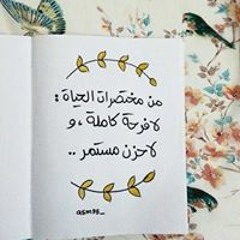 من مختصرات الحياة :
لا فرحة كاملة ، و
لا حزن مستمر ..
asmas_